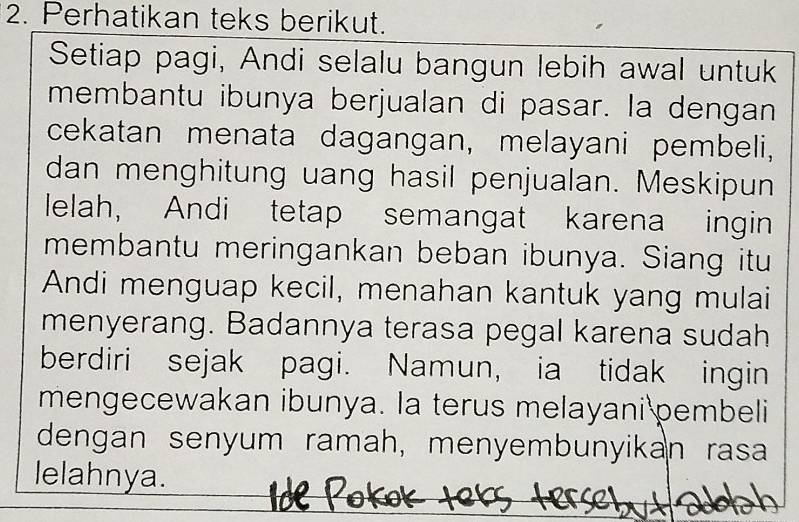 2. Perhatikan teks berikut.
Setiap pagi, Andi selalu bangun lebih awal untuk
membantu ibunya berjualan di pasar. Ia dengan
cekatan menata dagangan, melayani pembeli,
dan menghitung uang hasil penjualan. Meskipun
lelah, Andi tetap semangat karena ingin
membantu meringankan beban ibunya. Siang itu
Andi menguap kecil, menahan kantuk yang mulai
menyerang. Badannya terasa pegal karena sudah
berdiri sejak pagi. Namun, ia tidak ingin
mengecewakan ibunya. Ia terus melayani pembeli
dengan senyum ramah, menyembunyikan rasa
lelahnya.
Ide Pokok teks tersebut adalah